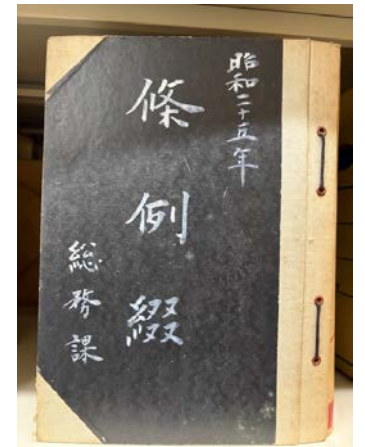 昭和二十五年
條例綴
総務課